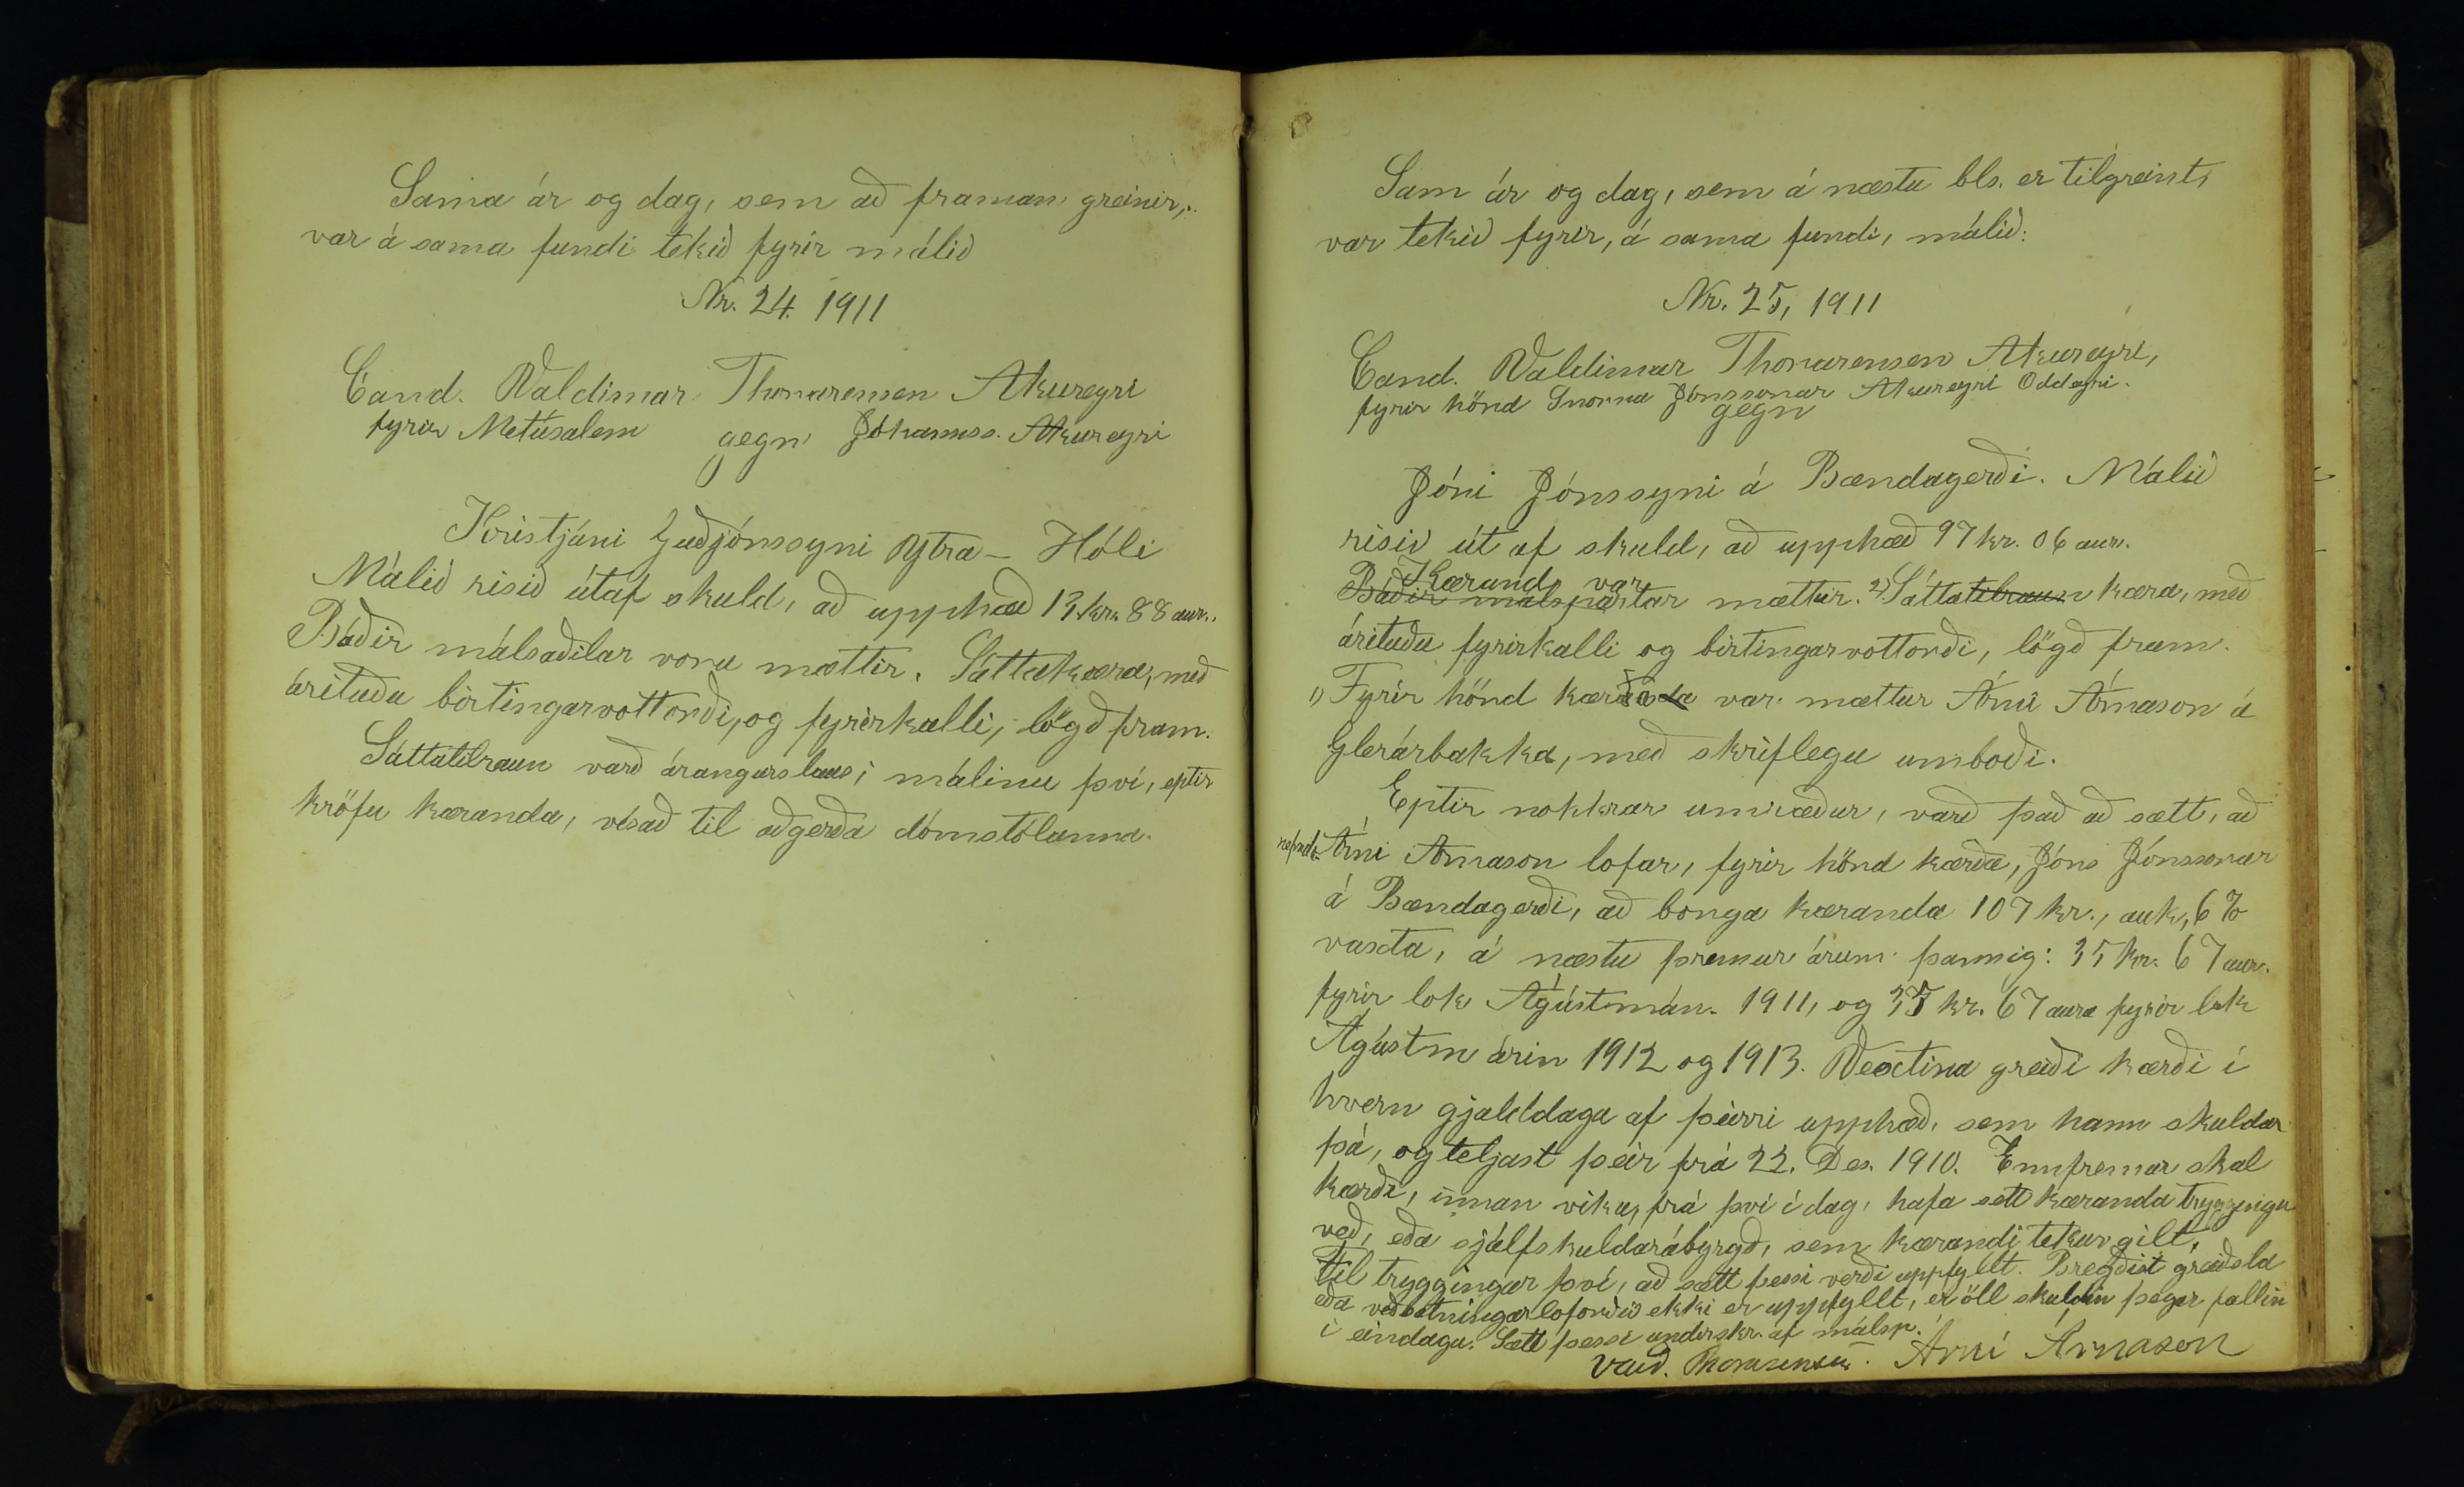 Sama ár og dag, sem að framan greinir,
var á sama fundi tekið fyrir málið
Nr. 24. 1911
Cand. Valdimar Thorarensen Akureyri
fyrir Metúsalem gegn Jóhannss. Akureyri
Kristjáni Guðjónssyni Ytra-Hóli
Málið risið útaf skuld, að upphæð 13 kr. 88 aur.
Báðir málsaðilar voru mættir. Sáttakæra, með
árituðu birtingarvottorði, og fyrirkalli, lögð fram.
Sáttatilraun varð árangurslaus; málinu því, eptir
kröfu kæranda, vísað til aðgerða dómstólanna.
Sam ár og dag, sem á næstu bls. er tilgreint,
var tekið fyrir, á sama fundi, málið:
Nr. 25, 1911
Cand. Valdimar Thorarensen Akureyri,
fyrir hönd Snorra Jónssonar Akureyri Oddeyri.
gegn
Jóni Jónssyni á Bændagerði. Málið
risið út af skuld, að upphæð 97 kr. 06 aur.
Kærandi var
Báðir málspartar mættur. 2) Sáttatilraun kæra, með
árituðu fyrirkalli og birtingarvottorði, lögð fram.
1) Fyrir hönd kærða var mættur Árni Árnason á
Glerárbakka, með skriflegu umboði.
Eptir nokkrar umræður, varð það að sætt, að
nefndr Árni Árnason lofar, fyrir hönd kærða, Jóns Jónssonar
á Bændagerði, að borga kæranda 107 kr., auk, 6 %
vaxta, á næstu þremur árum þannig: 35 kr. 67 aur.
fyrir lok Ágústmán. 1911, og 35 kr. 67 aura fyrir lok
Ágústm árin 1912 og 1913. Vextina greiði kærði í
hvern gjalddaga af þeirri upphæð, sem hann skuldar
þá, og teljast þeir frá 22. Des. 1910. Ennfremur skal
kærði, innan viku, frá því í dag, hafa sett kæranda tryggingu
veð, eða sjálfskuldarábyrgð, sem kærandi tekur gilt,
til tryggingar því, að sætt þessi verði uppfyllt. Bregðist greiðsla
eða veðsetningarloforðið ekki er uppfyllt, er öll skuldin þegar fallin
í eindaga. Sætt þessi undirskr. af málsp.
Vald. Thorarensen. Árni Árnason